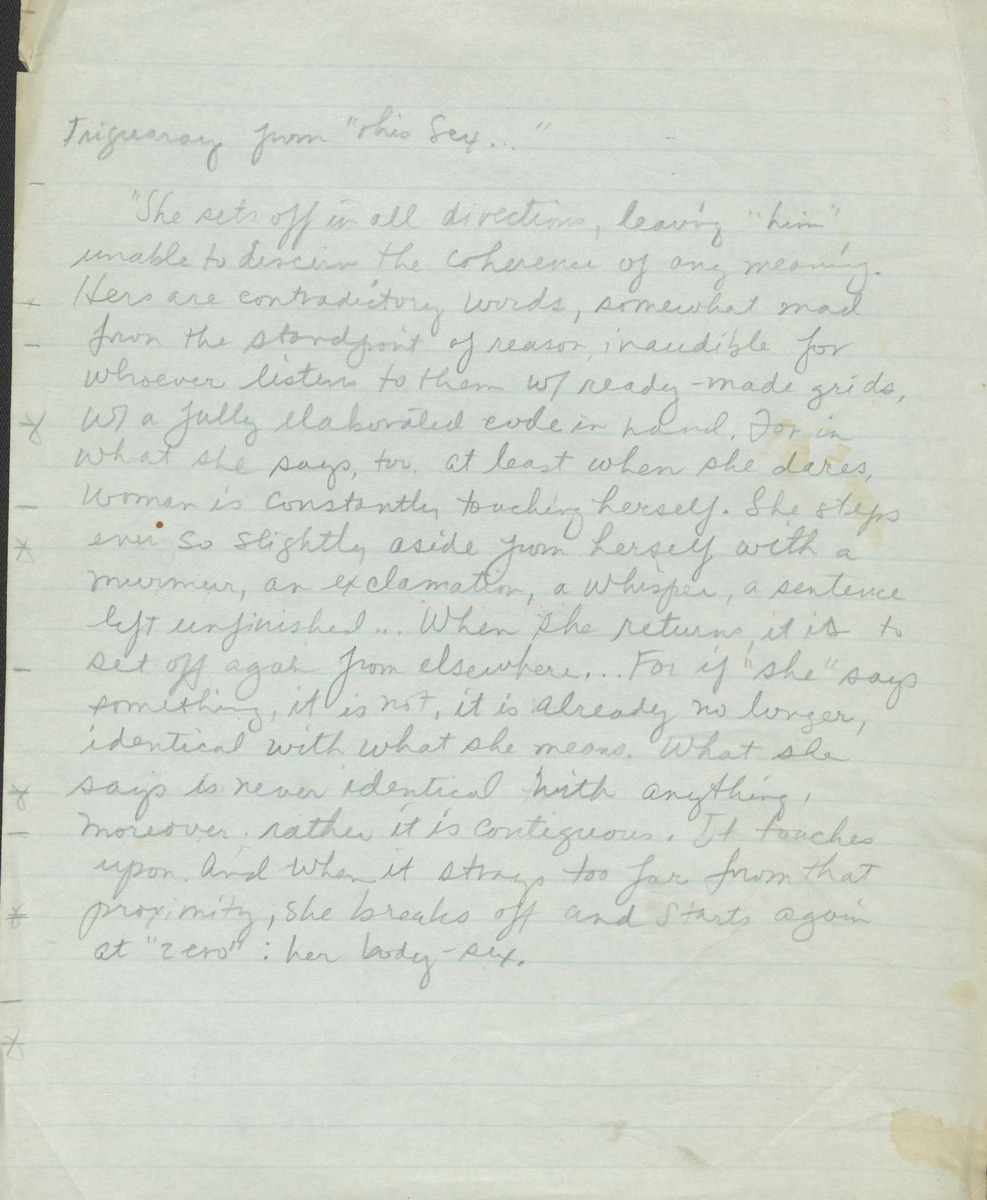 Iriguaray from "This Sex..."
"She sets off in all directions, leaving "him"
unable to discern the coherence of any meaning.
Hers are contradictory words, somewhat mad
from the standpoint of reason, inaudible for
whoever listens to them w/ ready-made grids,
w/ a fully elaborated code in hand. For in
what she says, too, at least when she dares,
woman is constantly touching herself. She steps
ever so slightly aside from herself with a
murmur, an exclamation, a whisper, a sentence
left unfinished... When she returns, it is to
set off again from elsewhere... For if "she" says
something, it is not, it is already no longer,
identical with what she means. What she
says is never identical with anything,
moreover; rather it is contiguous. It touches
upon. And when it strays too far from that
proximity, she breaks off and starts again
at "zero": her body-sex.